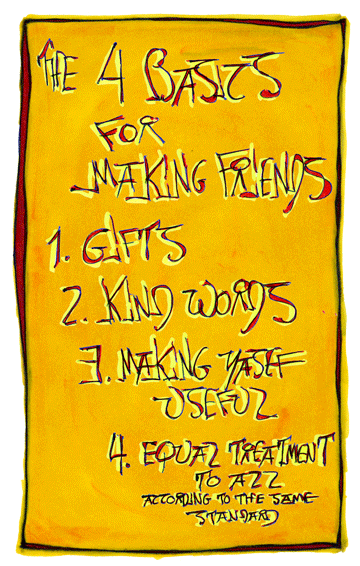 THE 4 BASICS
FOR
MAKING FRIENDS
1. GIFTS
2. KIND WORDS
3. MAKING YASELF
USEFUL
4. EQUAL TREATMENT
TO ALL
ACCORDING TO THE SAME
STANDARD